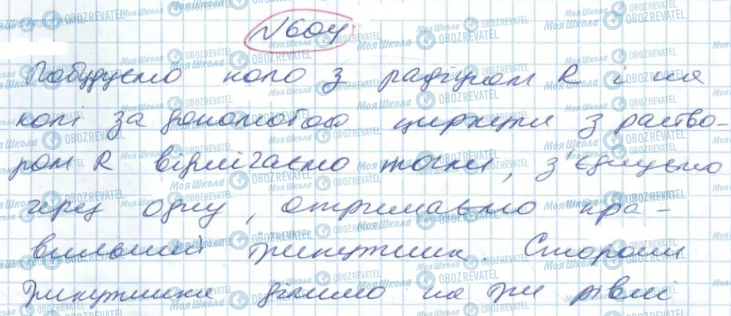 №604
Побудуємо коло з радіусом R і на
колі за допомогою циркуля з раство-
ром R відмічаємо точки, з'єднуємо
через одну, отримаємо пра-
вильний трикутник. Сторони
трикутника ділимо на три рівні